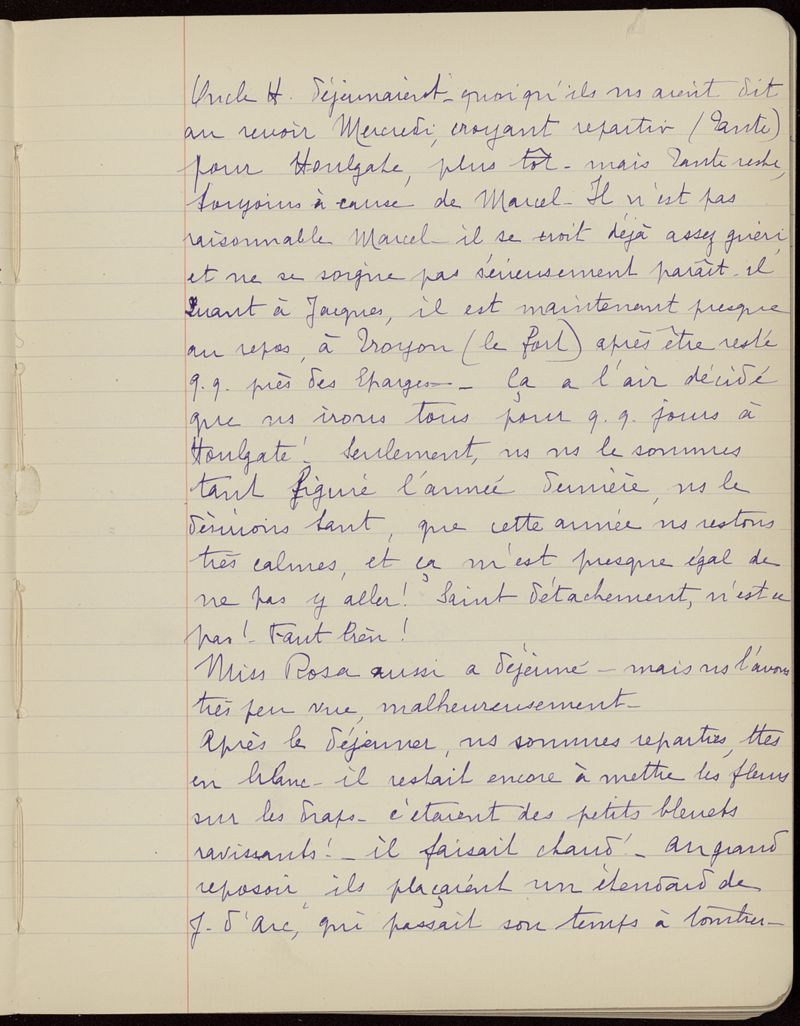 Oncle H. déjeunaient - quoiqu'ils ns aient dit
au revoir Mercredi, croyant repartir (Tante)
pour Houlgate, plus tôt - mais Tante reste,
toujours à cause de Marcel - Il n'est pas
raisonnable Marcel - il se croit déjà assez guéri,
et ne se soigne pas sérieusement paraît-il
Quant à Jacques, il est maintenant presque
au repos, à Troyon (le fort) après être resté
q.q. près des Eparges - Ça a l'air décidé
que ns irons tous pour q.q. jours à
Houlgate! Seulement, ns ns le sommes
tant figuré l'année dernière, ns le
désirions tant, que cette année ns restons
très calmes, et ça m'est presque égal de
ne pas y aller! Saint détachement, n'est ce
pas! - Faut bien!
Miss Rosa aussi a déjeuné - mais ns l'avons
très peu vue, malheureusement -
Après le déjeuner, ns sommes reparties, ttes
en blanc - il restait encore à mettre les fleurs
sur les draps - c'étaient des petits bleuets
ravissants! - il faisait chaud! - Au grand
reposoir, ils plaçaient un étendard de
J. d'Arc, qui passait son temps à tomber -